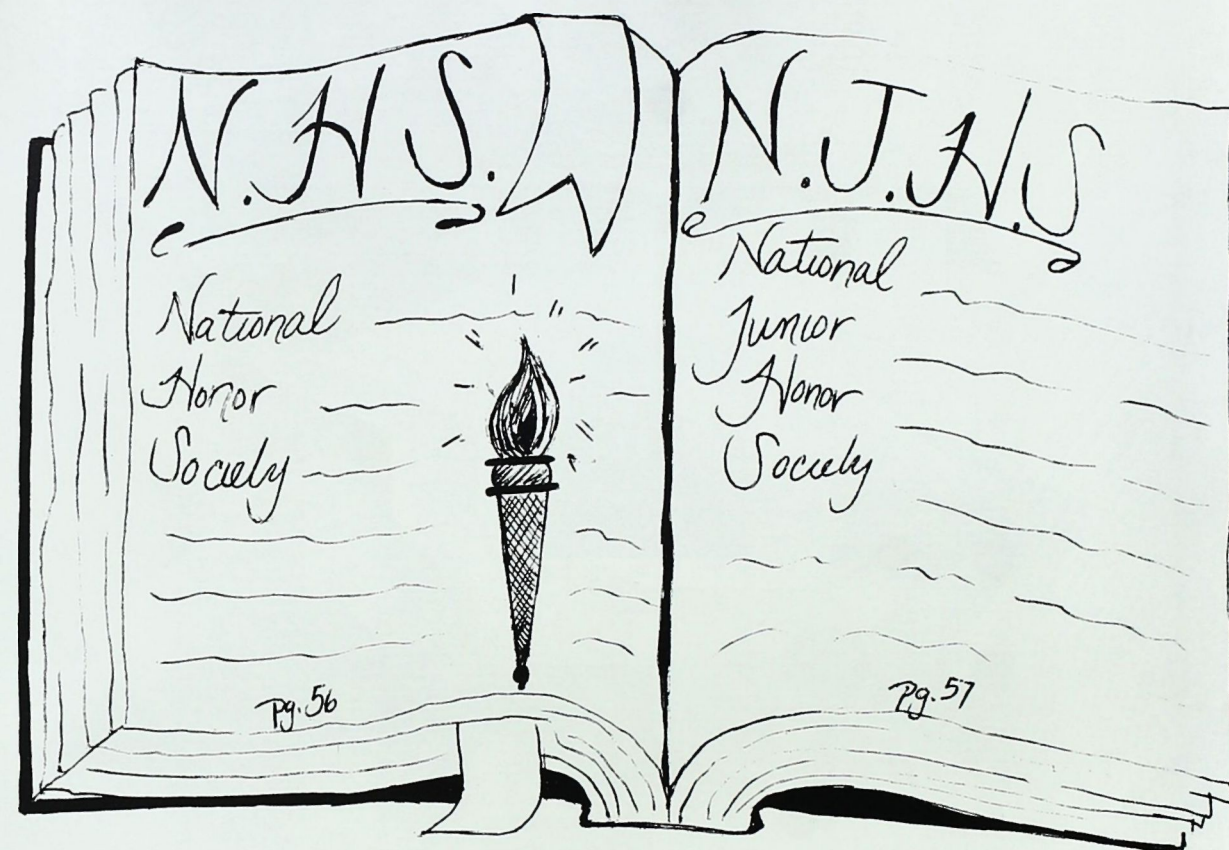 N.H S.
National
Honor
Society
pg. 56
N.J.H.S
National
Junior
Honor
Society
pg. 57